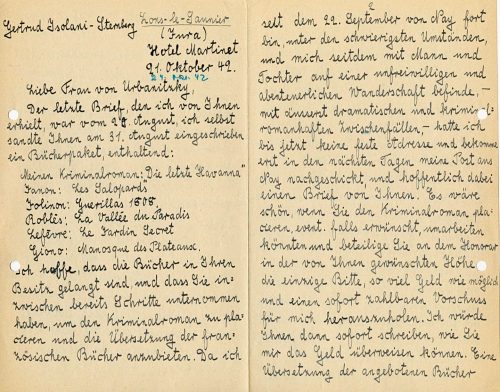 Gertrud Isolani-Sternberg Lons-le-Saunier
(Jura)
Hotel Martinet
21. Oktober 42.
Liebe Frau von Urbanitzky,
Der letzte Brief, den ich von Ihnen
erhielt, war vom 28. August, ich selbst
sandte Ihnen am 31. August eingeschrieben
ein Bücherpaket, enthaltend:
Meinen Kriminalroman: Die letzte Havanna"
Fanon: Les Galopards
Folinon: Guerillas 1808
Roblès: La Vallée du Paradis
Lefèvre: Le Jardin Secret
Giono: Manosque des Plateaux.
Ich hoffe, dass die Bücher in Ihren
Besitz gelangt sind und dass Sie in-
zwischen bereits Schritte unternommen
haben, um den Kriminalroman zu pla-
cieren und die Übersetzung der fran-
zösischen Bücher anzubieten. Da ich
2
seit dem 22. September von Nay fort
bin, unter den schwierigsten Umständen,
und mich seitdem mit Mann und
Tochter auf einer unfreiwilligen und
abenteuerlichen Wanderschaft befinde, –
mit äusserst dramatischen und kriminal-
romanhaften Zwischenfällen, – hatte ich
bis jetzt keine feste Adresse und bekomme
erst in den nächsten Tagen meine Post aus
Nay nachgeschickt, und hoffentlich dabei
einen Brief von Ihnen. Es wäre
schön, wenn Sie den Kriminalroman pla-
cieren, event. falls erwünscht, umarbeiten
könnten und beteilige Sie an dem Honorar
in der von Ihnen gewünschten Höhe
die einzige Bitte, so viel Geld wie möglich
und einen sofort zahlbaren Vorschuss
für mich herauszuholen. Ich würde
Ihnen dann sofort schreiben, wie Sie
mir das Geld überweisen können. Eine
Übersetzung der angebotenen Bücher